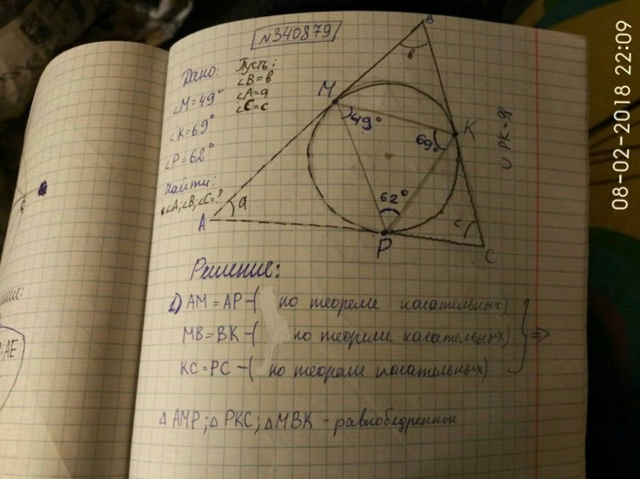 N340879
Дано:
∠M=49°
∠K=69°
∠P=62°
Найти:
∠A;∠B;∠C=?
Пусть:
∠B=в
∠A=a
∠C=c
B
в
M
49°
K
69°
62°
A
a
P
c
C
∪PK=
Решение:
1) AM=AP-( по теореме касательных)
MB=BK-( по теореме касательных)
KC=PC-( по теореме касательных)
⇒
△AMP;△PKC;△MBK-равнобедренной
AE
08-02-2018 22:09